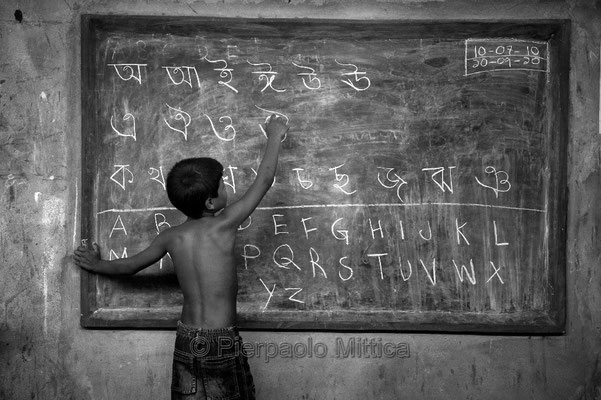 10-07-10
20-09-20
অ আ ই ঈ উ ঊ
এ ঐ ও ঔ
ক খ চ ছ জ ঝ ঞ
A B D E F G H I J K L
M P Q R S T U V W X
Y Z
© Pierpaolo Mittica